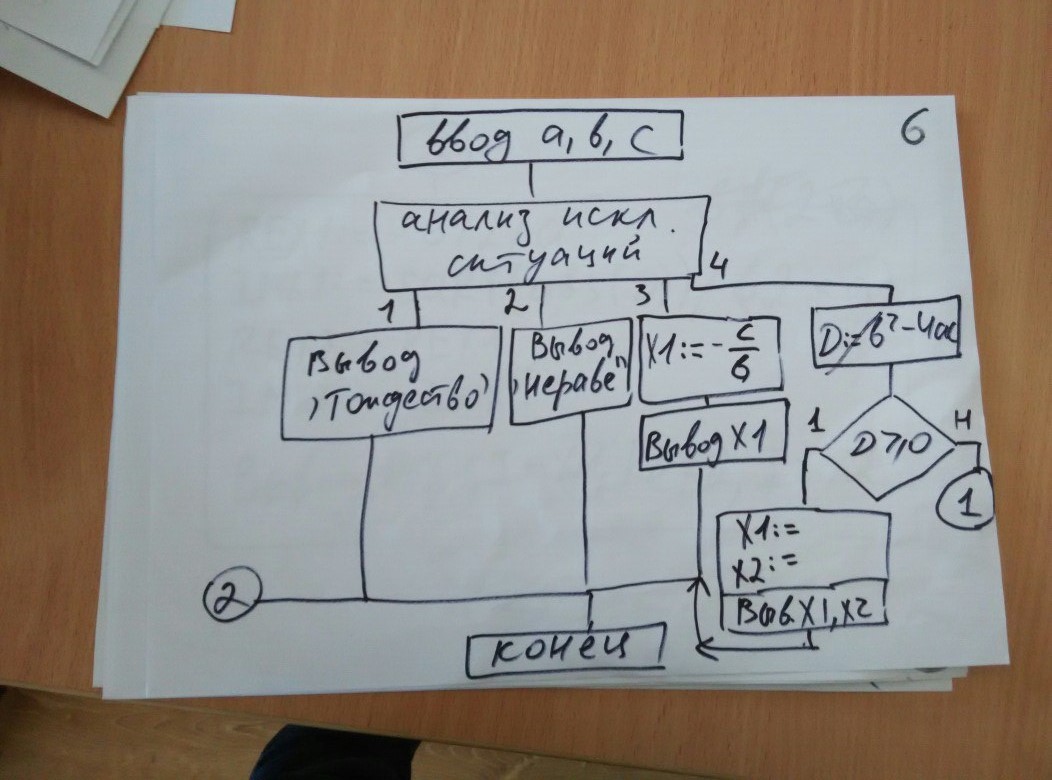 6
ввод а, в, с
анализ искл.
ситуаций
1
2
3
4
Вывод
"Тождество"
Вывод
"нераве"
X1:= - c/b
D:= b² - 4ac
Вывод X1
1
D ≥ 0
Н
1
X1:=
X2:=
Выв. X1, X2
2
конец